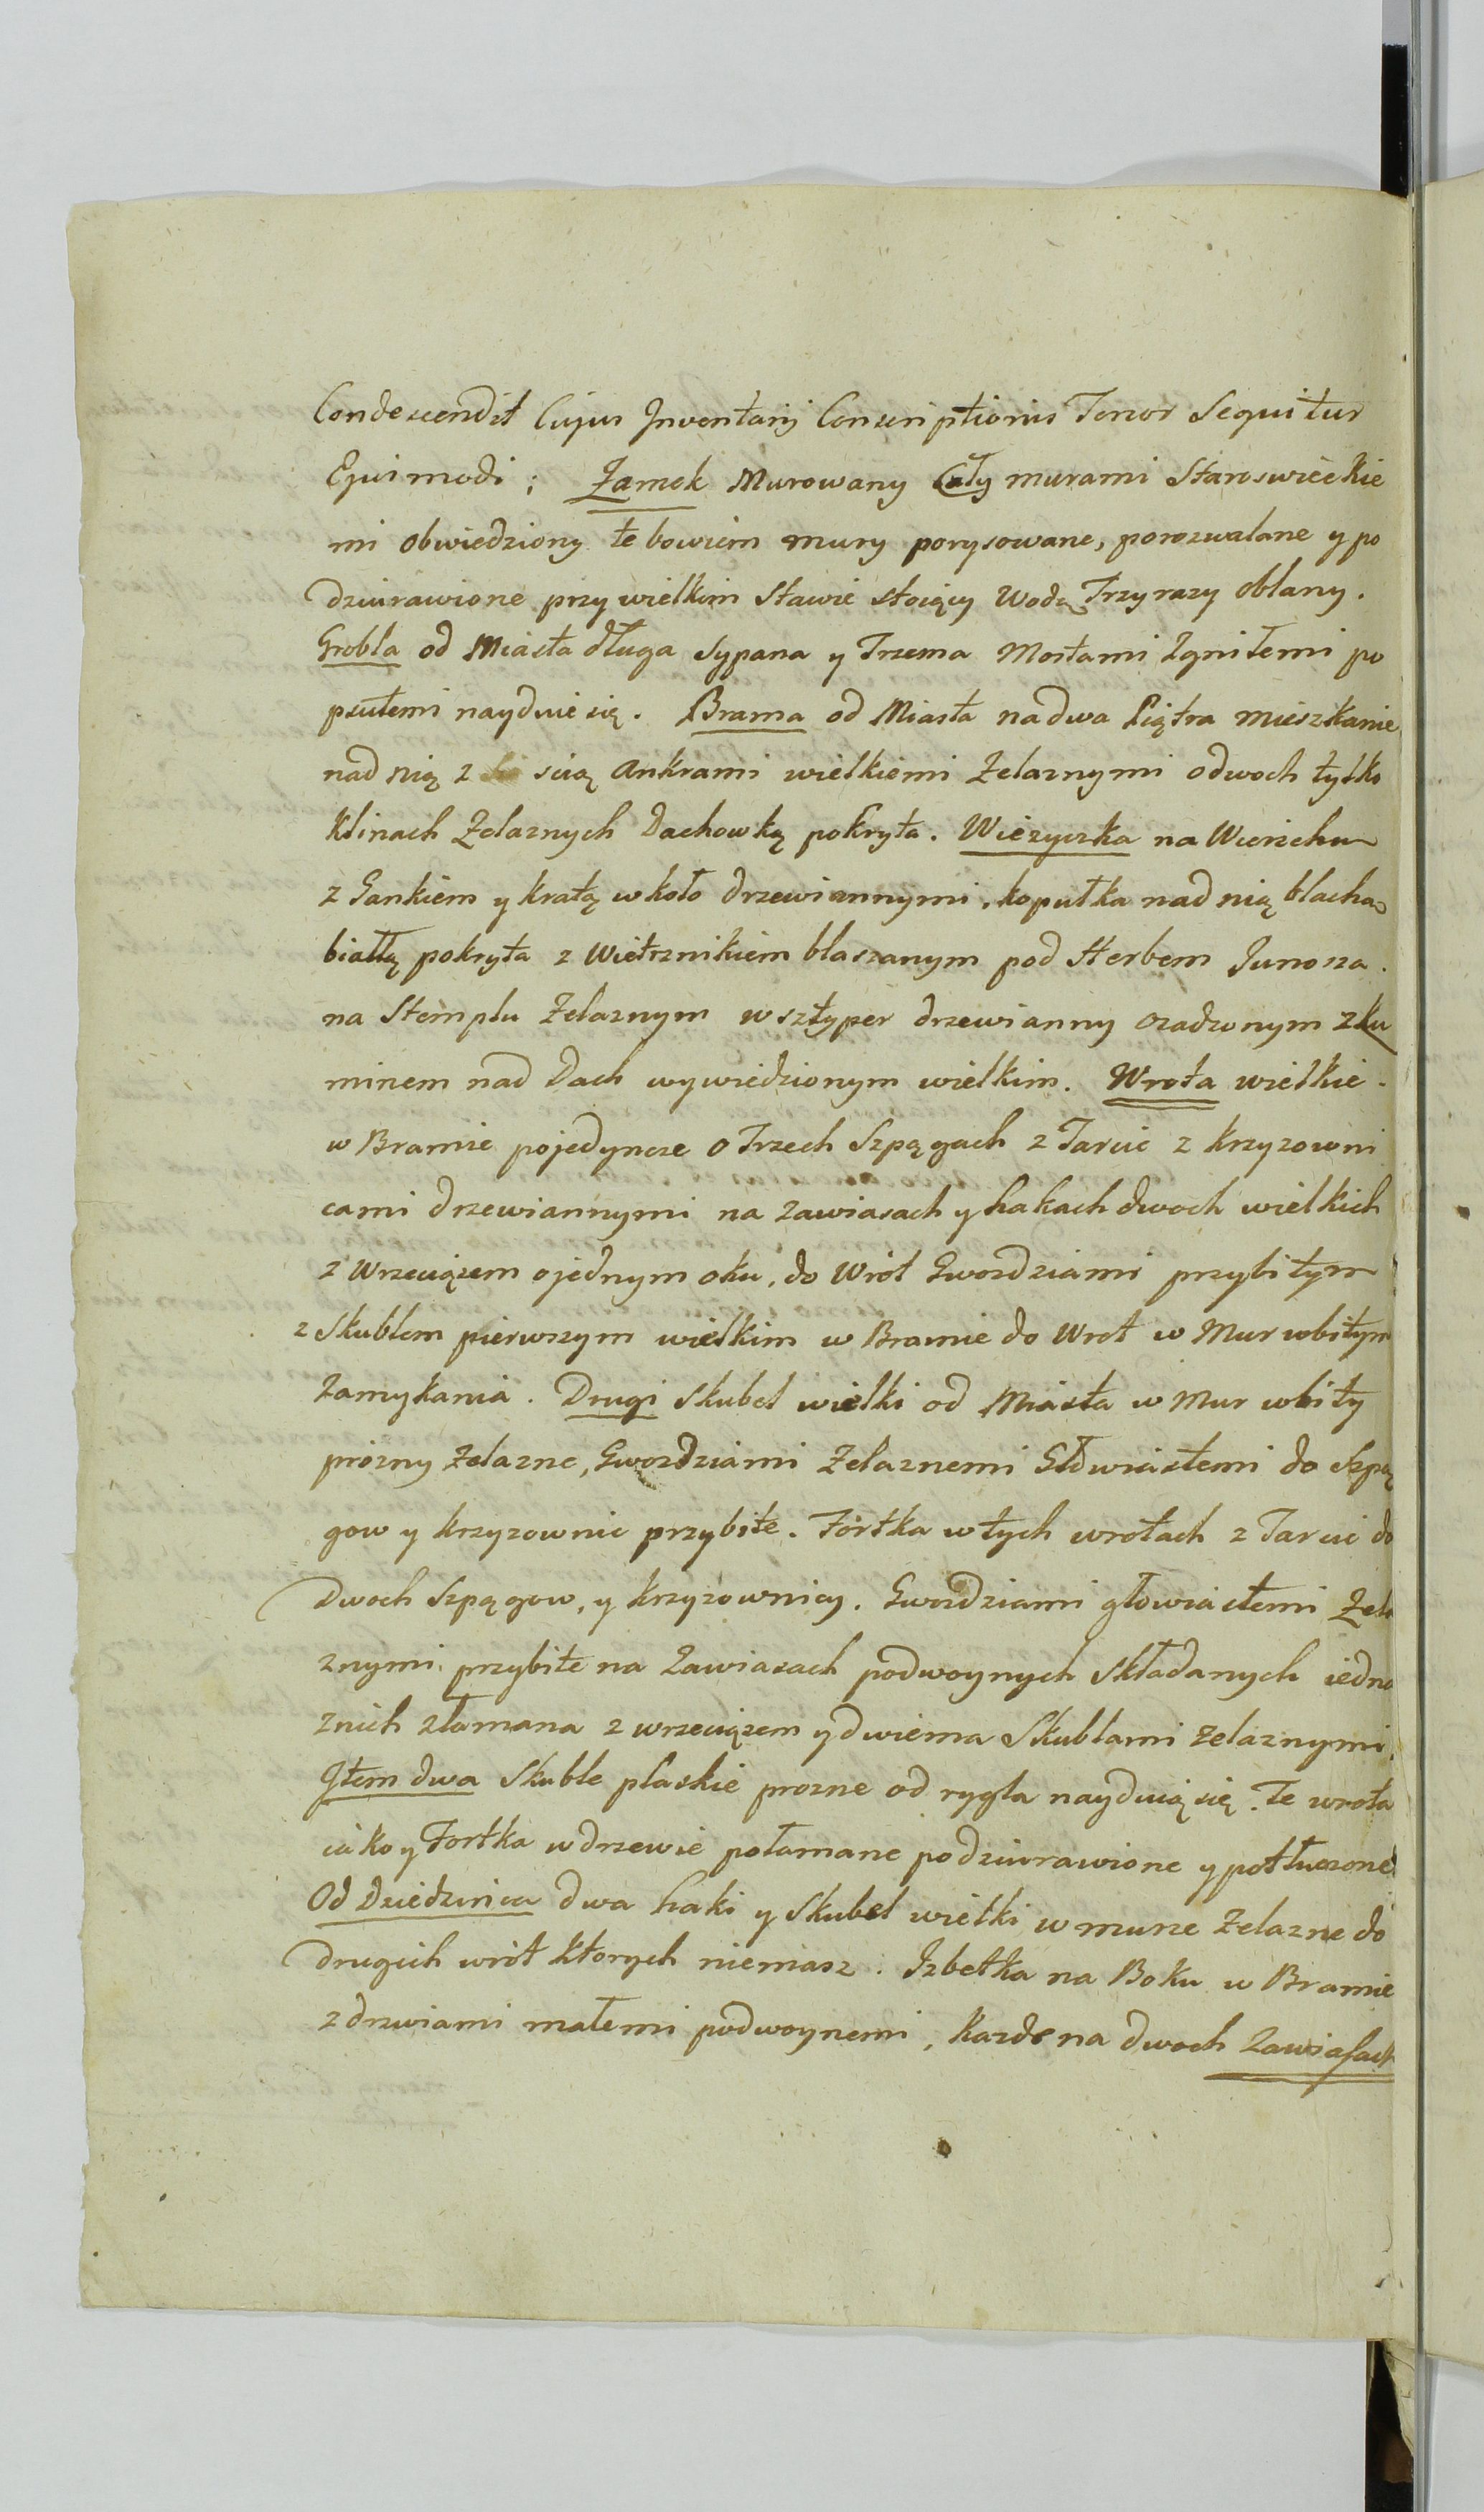 Condescendit Cujus Inventarij Conscriptionis Tenor Sequitur
Ejusmodi; Zamek Murowany Cały murami Staroswieckie
mi obwiedziony te bowiem mury porysowane, porozwalane y po
dziurawione przy wielkim Stawie stoiący Wodą Trzy razy oblany.
Grobla od Miasta długa Sypana y Trzema Mostami Zgniłemi po
psułemi nayduie się. Brama od Miasta na dwa Piątra mieszkanie
nad nią z scią Ankrami wielkiemi Zelaznymi odwoch tylko
Klinach Zelaznych Dachowką pokryta. Wieżyczka na Wierzchu
z Gankiem y kratą wkoło drzewiannymi, kopułka nad nią blachą
białłą pokryta z Wietrznikiem blaszanym pod Herbem Junosza.
na Stemplu Zelaznym w sztyper drzewianny osadzonym z ku
minem nad Dach wywiedzionym wielkim. Wrota wielkie
w Bramie pojedyncze o Trzech Szpągach z Tarcic z krzyzowni
cami drzewiannymi na zawiasach y hakach dwoch wielkich
z Wrzeciązem o jednym oku, do Wrót Gwozdziami przybitym
z Skublem pierwszym wielkim w Bramie do Wrot w Mur wbitym
Zamykania. Drugi Skubel wielki od Miasta w Mur wbity
prózny Zelazne, Gwozdziami Zelaznemi Główiastemi do Szpą
gow y krzyzownic przybite. Fórtka w tych wrotach z Tarcic do
Dwoch Szpągow, y krzyzownicy. Gwozdziami głowiastemi Zela
znymi przybite na Zawiasach podwoynych Składanych iedna
znich złamana z wrzeciązem y dwiema Skublami Zelaznymi.
Item dwa Skuble plaskie prozne od rygla nayduią się. Te wrota
iako y Fortka w drzewie połamane podziurawione y potłuczone
Od Dziedzinca dwa haki y Skubel wielki w murze Zelazne do
drugich wrót których niemasz. Izbetka na Boku w Bramie
z drzwiami małemi podwoynemi, kazde na dwoch Zawiasach